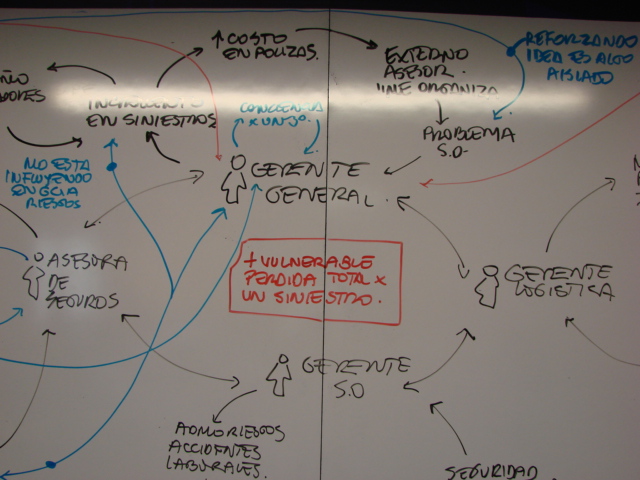 ↑ COSTO
EN POLIZAS.
EXTERNO
ASESOR.
ME ORGANIZA
REFORZANDO
IDEA ES ALGO
AISLADO
ADORES
INCREMENTO
EN SINIESTROS
CONCIENCIA
PROBLEMA
S.O.
NO ESTA
INFLUYENDO
EN
RIESGOS
GERENTE
GENERAL.
ASESORA
DE
SEGUROS
+ VULNERABLE
PERDIDA TOTAL X
UN SINIESTRO.
GERENTE
LOGISTICA
GERENTE
S.O
ADMO RIESGOS
ACCIDENTES
LABORALES.
SEGURIDAD